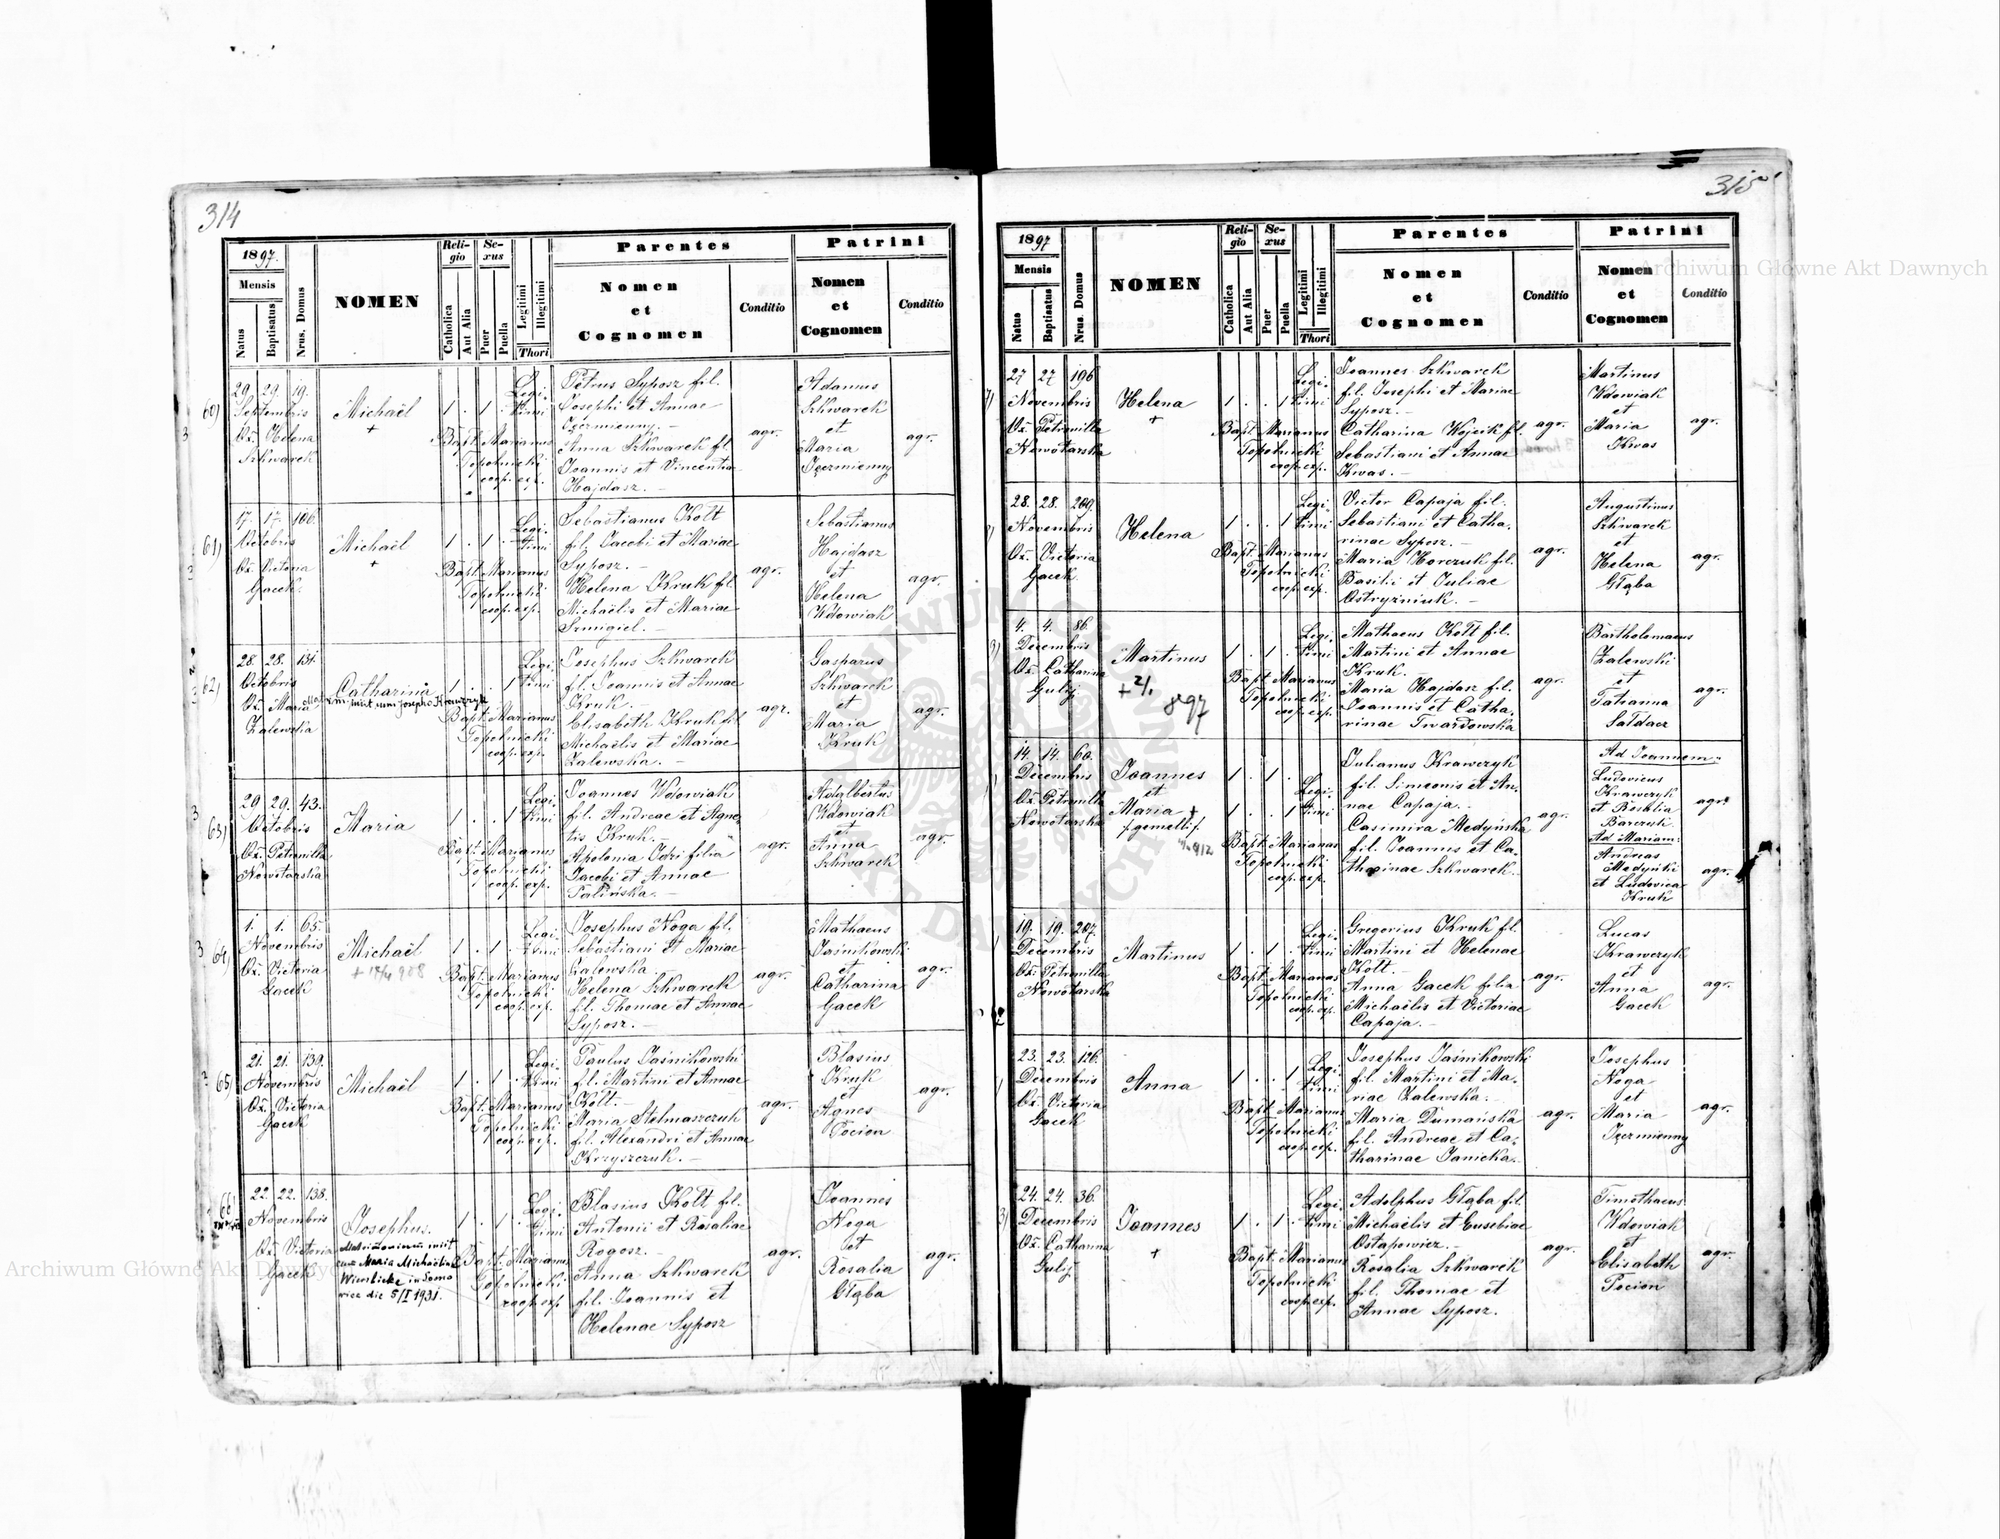 314
1897.
Mensis
Natus
Baptisatus
Nrus. Domus
NOMEN
Reli-
gio
Catholica
Aut Alia
Se-
xus
Puer
Puella
Legitimi
Illegitimi
Thori
Parentes
Nomen
et
Cognomen
Conditio
Patrini
Nomen
et
Cognomen
Conditio
60)
29. 29. 19.
Septembris
Ox. Helena
Szkwarek
Michaël
+
1 . 1 .
Legi-
timi
Bapt. Marianus
Topolnicki
coop. exp.
Petrus Syposz fil.
Josephi et Annae
Czermienny. —
Anna Szkwarek fl.
Joannis et Vincentia
Hajdasz. —
agr.
Adamus
Szkwarek
et
Maria
Czermienny
agr.
61)
17. 17. 106.
Octobris
Ox. Victoria
Gacek.
Michaël
+
1 . 1 .
Legi-
timi
Bapt. Marianus
Topolnicki
coop. exp.
Sebastianus Kołt
fil. Jacobi et Mariae
Syposz. —
Helena Kruk fl.
Michaëlis et Mariae
Szmigiel. —
agr.
Sebastianus
Hajdasz
et
Helena
Wdowiak
agr.
62)
28. 28. 131.
Octobris
Ox. Maria
Zalewska
Catharina
Matrim. iniit cum Josepho Krawczyk
1 . . 1
Legi-
timi
Bapt. Marianus
Topolnicki
coop. exp.
Josephus Szkwarek
fl. Joannis et Annae
Kruk. —
Elisabeth Kruk fl.
Michaëlis et Mariae
Zalewska. —
agr.
Gasparus
Szkwarek
et
Maria
Kruk
agr.
63)
29. 29. 43.
Octobris
Ox. Petronilla
Nowotarska
Maria
1 . . 1
Legi-
timi
Bapt. Marianus
Topolnicki
coop. exp.
Joannes Wdowiak
fil. Andreae et Agne-
tis Kruk. —
Apolonia filia
Jacobi et Annae
agr.
Adalbertus
Wdowiak
et
Anna
Szkwarek
agr.
64)
1. 1. 65.
Novembris
Ox. Victoria
Gacek
Michaël
1 . 1 .
Legi-
timi
Bapt. Marianus
Topolnicki
coop. exp.
Josephus Noga fil.
Sebastiani et Mariae
Zalewska. —
Helena Szkwarek
fl. Thomae et Annae
Syposz. —
agr.
Mathaeus
Jaśnikowski
et
Catharina
Gacek
agr.
65)
21. 21. 139.
Novembris
Ox. Victoria
Gacek
Michaël
1 . 1 .
Legi-
timi
Bapt. Marianus
Topolnicki
coop. exp.
Paulus Jaśnikowski
fl. Martini et Annae
Kołt. —
Maria Stelmaszczuk
fil. Alexandri et Annae
Krzyszczuk. —
agr.
Blasius
Kruk
et
Agnes
Pocion
agr.
66)
22. 22. 138.
Novembris
Ox. Victoria
Gacek
Josephus.
Matrimonium iniit
cum Maria Michaelina
die 5/I 1931.
1 . 1 .
Legi-
timi
Bapt. Marianus
Topolnicki
coop. exp.
Blasius Kołt fil.
Antonii et Rosaliae
Rogosz. —
Anna Szkwarek
fil. Joannis et
Helenae Syposz
agr.
Joannes
Noga
et
Rosalia
Głąba
agr.
315
1897
Mensis
Natus
Baptisatus
Nrus. Domus
NOMEN
Reli-
gio
Catholica
Aut Alia
Se-
xus
Puer
Puella
Legitimi
Illegitimi
Thori
Parentes
Nomen
et
Cognomen
Conditio
Patrini
Nomen
et
Cognomen
Conditio
27 27 196
Novembris
Ox. Petronilla
Nowotarska
Helena
+
1 . . 1
Legi-
timi
Bapt. Marianus
Topolnicki
coop. exp.
Joannes Szkwarek
fil. Josephi et Mariae
Syposz. —
Catharina Wojcik fl.
Sebastiani et Annae
Kwas. —
agr.
Martinus
Wdowiak
et
Maria
Kwas
agr.
28. 28. 209.
Novembris
Ox. Victoria
Gacek.
Helena
1 . . 1
Legi-
timi
Bapt. Marianus
Topolnicki
coop. exp.
Victor Capaja fil.
Sebastiani et Catha-
rinae Syposz. —
Maria Horczuk fil.
Basilii et Juliae
Ostryżniuk. —
agr.
Augustinus
Szkwarek
et
Helena
Głąba
agr.
4. 4. 86.
Decembris
Ox. Catharina
Gulij
Martinus
897
1 . 1 .
Legi-
timi
Bapt. Marianus
Topolnicki
coop. exp.
Mathaeus Kołt fil.
Martini et Annae
Kruk.
Maria Hajdasz fil.
Joannis et Catha-
rinae Twardowska
agr.
Bartholomaeus
Zalewski
et
Tatianna
Sałdacz
agr.
14. 14. 60.
Decembris
Ox. Petronilla
Nowotarska
Joannes
et
Maria +
gemelli
1 . 1 .
1 . . 1
Legi-
timi
Bapt. Marianus
Topolnicki
coop. exp.
Julianus Krawczyk
fil. Simeonis et An-
nae Capaja. —
Casimira Medyńska
fil. Joannis et Ca-
tharinae Szkwarek. —
agr.
Ad Joannem:
Ludovicus
Krawczyk
et Rosalia
Barczuk
agr.
Ad Mariam:
Andreas
Medyński
et Ludovica
Kruk
agr.
19. 19. 207.
Decembris
Ox. Petronilla
Nowotarska
Martinus
1 . 1 .
Legi-
timi
Bapt. Marianus
Topolnicki
coop. exp.
Gregorius Kruk fl.
Martini et Helenae
Kołt. —
Anna Gacek filia
Michaëlis et Victoriae
Capaja. —
agr.
Lucas
Krawczyk
et
Anna
Gacek
agr.
23. 23. 126.
Decembris
Ox. Victoria
Gacek
Anna
1 . . 1
Legi-
timi
Bapt. Marianus
Topolnicki
coop. exp.
Josephus Jaśnikowski
fil. Martini et Ma-
riae Zalewska. —
Maria Dumańska
fil. Andreae et Ca-
tharinae Janicka. —
agr.
Josephus
Noga
et
Maria
Czermienny
agr.
24. 24. 36.
Decembris
Ox. Catharina
Gulij
Joannes
+
1 . 1 .
Legi-
timi
Bapt. Marianus
Topolnicki
coop. exp.
Adolphus Głąba fil.
Michaëlis et Eusebiae
Ostapowicz. —
Rosalia Szkwarek
fil. Thomae et
Annae Syposz.
agr.
Timothaeus
Wdowiak
et
Elisabeth
Pocion
agr.
Archiwum Główne Akt Dawnych
Archiwum Główne Akt Dawnych
ARCHIWUM GŁÓWNE AKT DAWNYCH